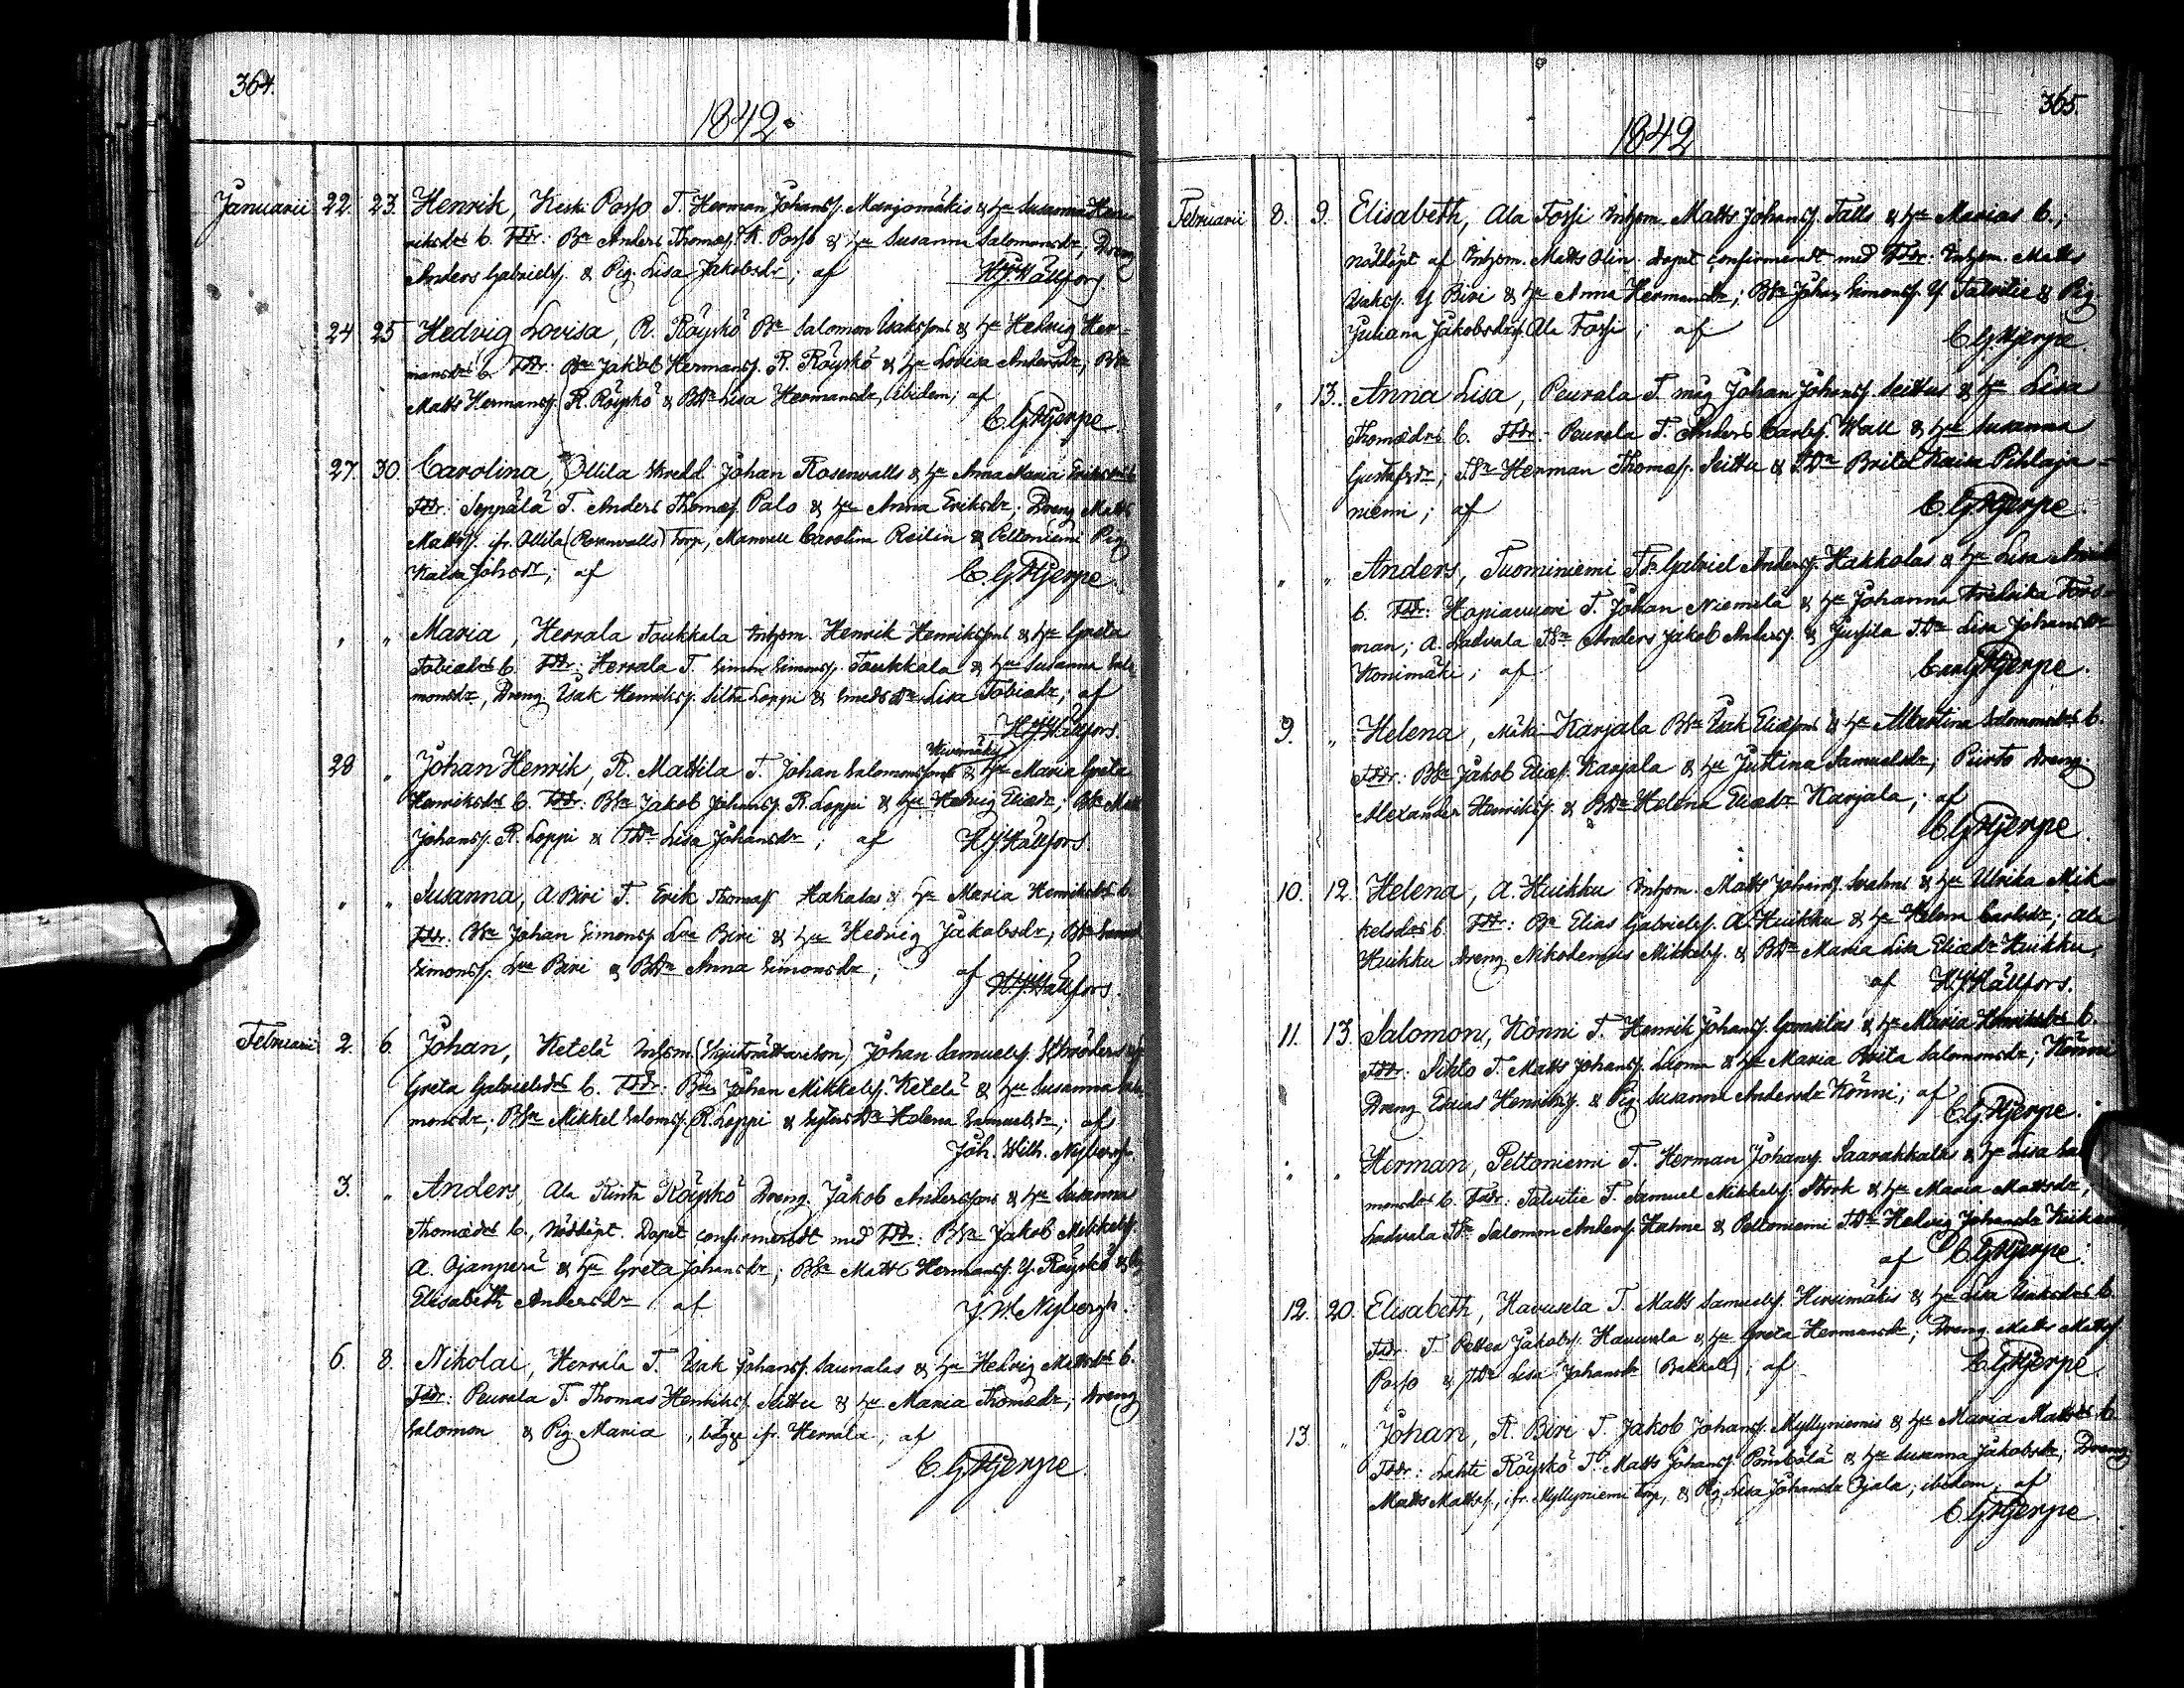 364.
1842.
Januarii 22. 23. Henrik, Keski Porso T. Herman Johanss. Marjomäkis & Hu Susanna Hen-
riksdrs b. Fddr: Bn Anders Thomæss. K. Porso & Hu Susanna Salomonsdr; Dreng
Anders Gabrielss. & Pig. Lisa Jakobsdr; af HJHällfors
24 25 Hedvig Lovisa, R. Röyskö Bn Salomon Isakssons & Hu Hedvig Her-
mansdrs b. Fddr: Bn Jakob Hermanss. R. Röyskö & Hu Lovisa Andersdr; BSn
Matts Hermanss. R. Röyskö & BDr Lisa Hermansdr, ibidem; af
C. G. Hjerpe.
27. 30. Carolina, Ollila Johan Rosenvalls & Hu Anna Maria Eriksdrs b.
Fddr: Seppälä T. Anders Thomæss. Palo & Hu Anna Eriksdr; Dreng Matts
Mattss. ifr. Ollila (Rosenvalls) Torp, Mamsell Carolina Reilin & Peltoniemi Pig.
Kaisa Johsdr; af C. G. Hjerpe.
" " Maria, Herrala Taukkala Inhysm. Henrik Henrikssons & Hu Greta
Tobiædrs b. Fddr: Herrala T. Simon Simonss. Taukkala & Hu Susanna Salo-
monsdr, Dreng Isak Henrikss. Silta Loppi & Smeds Dr Lisa Tobiædr; af
HJHällfors.
28 " Johan Henrik, R. Mattila T. Johan Salomonssons Kivimäkis & Hu Maria Greta
Henriksdrs b. Fddr: BSn Jakob Johanss. R. Loppi & Hu Hedvig Eliædr; BSn Matts
Johanss. R. Loppi & TDr Lisa Johansdr; af H. J. Hällfors.
" " Susanna, A. Biri T. Erik Thomæss. Hakalas & Hu Maria Henriksdrs b.
Fddr: BSn Johan Simonss. Lva Biri & Hu Hedvig Jakobsdr; BSn
Simonss. Lva Biri & BDr Anna Simonsdr; af H. J. Hällfors.
Februarii 2. 6. Johan, Ketelä Inhysm. (Skjutsrättaren) Johan Samuelss. Schröders &
Greta Gabrielsdrs b. Fddr: Bn Johan Mikkelss. Ketelä & Hu Susanna Salo-
monsdr; BSn Mikkel Saloms. R. Loppi & Sytn Dr Helena Samuelsdr; af
Joh. Wilh. Nybergh.
3. " Anders, Ala Rinta Röyskö Dreng Jakob Anderssons & Hu Susanna
Thomædrs b., Nöddöpt. Dopet confirmeradt med Fddr: BSn Jakob Mikkelss.
A. Ojanperä & Hu Greta Johansdr; BSn Matts Hermanss. Y. Röyskö &
Elisabeth Andersdr, af J. W. Nybergh.
6. 8. Nikolai, Herrala T. Isak Johanss. Saunalas & Hu Hedvig Mattsdrs b.
Fddr: Peurala T. Thomas Henrikss. Seittu & Hu Maria Thomædr; Dreng
Salomon & Pig. Maria, bägge ifr. Herrala, af
C. G. Hjerpe.
365.
1842
Februarii 8. 9. Elisabeth, Ala Torsi Inhysm. Matts Johanss. Falls & Hu Marias b.;
nöddöpt af Inhysm. Matts Olin. Dopet confirmeradt med Fddr: Inhysm. Matts
Isakss. Y Biri & Hu Anna Hermansdr; BSn Johan Simonss. Y. Talvitie & Pig.
Juliana Jakobsdr Ala Torsi; af C. G. Hjerpe.
" 13. Anna Lisa, Peurala T. måg Johan Johanss. Seittus & Hu Lisa
Thomædrs b. Fddr: Peurala T. Anders Carlss. Wall & Hu Susanna
Gustafsdr; TSn Herman Thomæss. Seittu & TDr Brita Kaisa Pihlaja-
niemi; af C. G. Hjerpe.
" " Anders, Tuominiemi TSn Gabriel Anderss. Hakkolas & Hu Lisa
b. Fddr: Hopiavuori T. Johan Niemelä & Hu Johanna Fredrika Fors-
man; A. Ladvala TSn Anders Jakob Anderss. & Jussila TDr Lisa Johansdr
Konimäki; af Carl G. Hjerpe.
9. " Helena, Mäki-Karjala BSn Isak Eliæssons & Hu Albertina Salomonsdrs b.
Fddr: BSn Jakob Eliæss. Karjala & Hu Justina Samuelsdr; Puirto Dreng
Alexander Henrikss. & BDr Helena Eliædr Karjala; af
C. G. Hjerpe.
10. 12. Helena, A. Huikku Inhysm. Matts Johanss. Svahns & Hu Ulrika Mik-
kelsdrs b. Fddr: Bn Elias Gabrielss. A. Huikku & Hu Helena Carlsdr; Ala
Huikku Dreng Nikodemus Mikkelss. & BDr Maria Lisa Eliædr Huikku,
af H. J. Hällfors.
11. 13. Salomon, Könni T. Henrik Johanss. Gomsilas & Hu Maria Henriksdrs b.
Fddr: Sihto T. Matts Johanss. Luoma & Hu Maria Brita Salomonsdr; Könni
Dreng Esaias Henrikss. & Pig. Susanna Andersdr Könni; af
C. G. Hjerpe.
" " Herman, Peltoniemi T. Herman Johanss. Saarakkalas & Hu Lisa Salo-
monsdrs b. Fddr: Talvitie T. Samuel Mikkelss. Stork & Hu Maria Mattsdr;
Ladvala TSn Salomon Anderss. Halme & Peltoniemi TDr Hedvig Johansdr
af C. G. Hjerpe.
12. 20. Elisabeth, Havusela T. Matts Samuelss. Hirsimäkis & Hu Lisa Isaksdrs b.
Fddr: T. Petter Jakobss. Havusela & Hu Greta Hermansdr; Dreng Matts Mattss.
Porso & TDr Lisa Johansdr (Bakkala); af C. G. Hjerpe.
13 " Johan, R. Biri T. Jakob Johanss. Myllyniemis & Hu Maria Mattsdrs b.
Fddr: Lahti Röyskö T. Matts Johanss. Pömbölä & Hu Susanna Jakobsdr; Dreng
Matts Mattss., ifr. Myllyniemi torp, & Pig. Lisa Johansdr Ojala; ibidem, af
C. G. Hjerpe